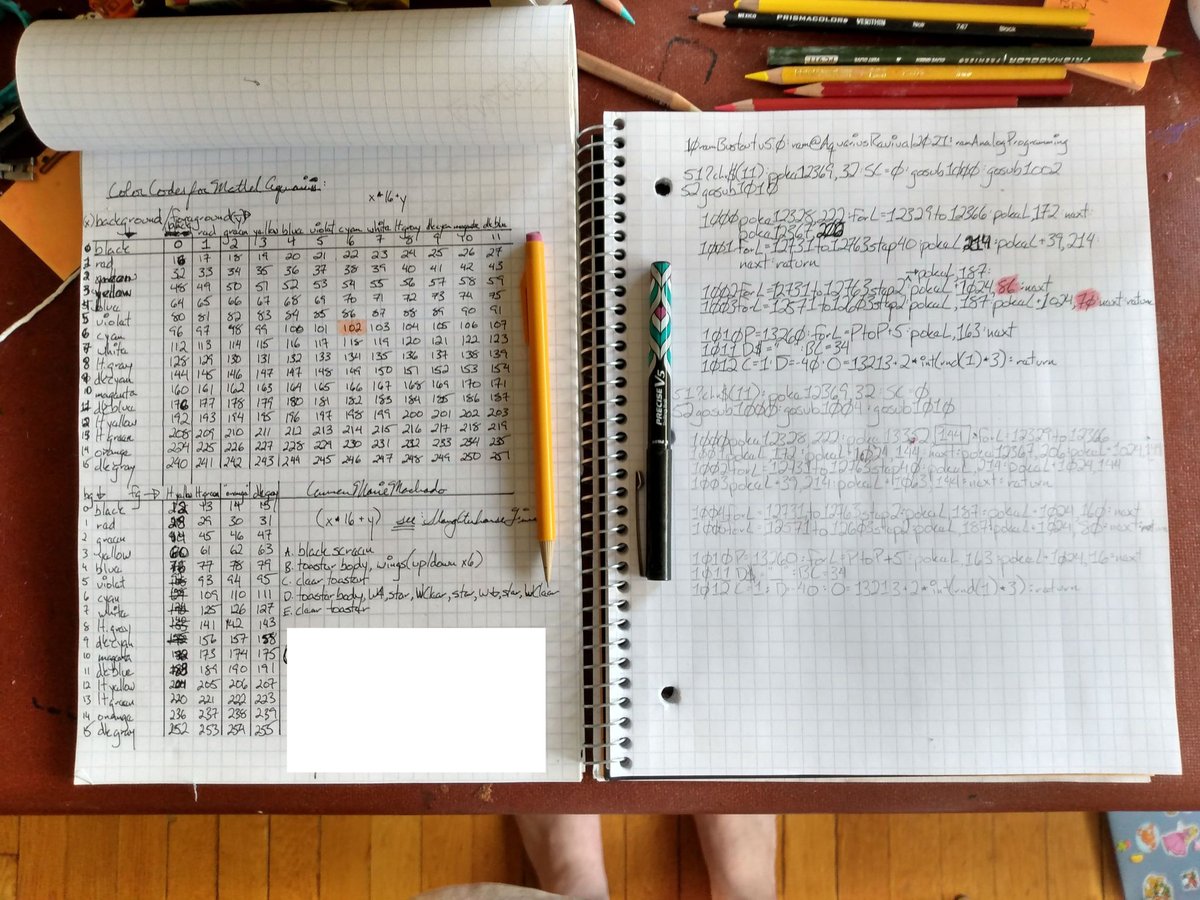 Color Codes for Mattel Aquarius:
x*16+y
(x)background/foreground(y)
black red green yellow blue violet cyan white lt.gray dkcyan magenta dkblue
0 1 2 3 4 5 6 7 8 9 10 11
0 black
1 red 16 17 18 19 20 21 22 23 24 25 26 27
2 green 32 33 34 35 36 37 38 39 40 41 42 43
3 yellow 48 49 50 51 52 53 54 55 56 57 58 59
4 blue 64 65 66 67 68 69 70 71 72 73 74 75
5 violet 80 81 82 83 84 85 86 87 88 89 90 91
6 cyan 96 97 98 99 100 101 102 103 104 105 106 107
7 white 112 113 114 115 116 117 118 119 120 121 122 123
8 lt.gray 128 129 130 131 132 133 134 135 136 137 138 139
9 dkcyan 144 145 146 147 147 148 149 150 151 152 153 154
10 magenta 160 161 162 163 164 165 166 167 168 169 170 171
11 dkblue 176 177 178 179 180 181 182 183 184 185 186 187
12 ltyellow 192 193 194 195 196 197 198 199 200 201 202 203
13 ltgreen 208 209 210 211 212 213 214 215 216 217 218 219
14 orange 224 225 226 227 228 229 230 231 232 233 234 235
15 dkgray 240 241 242 243 244 245 246 247 248 249 250 251
bg fg ltyellow ltgreen orange dkgray
0 black 12 13 14 15
1 red 28 29 30 31
2 green 44 45 46 47
3 yellow 60 61 62 63
4 blue 77 78 79
5 violet 93 94 95
6 cyan 109 110 111
7 white 125 126 127
8 lt.gray 141 142 143
9 dkcyan 156 157 158
10 magenta 173 174 175
11 dkblue 189 190 191
12 ltyellow 204 205 206 207
13 ltgreen 220 221 222 223
14 orange 236 237 238 239
15 dkgray 252 253 254 255
Carmen Maria Machado
(x*16+y) see: Slaughterhouse
A. black screen
B. toaster body, wings(up/down x6)
C. clear toaster
D. toaster body, star, WClear, star, star, WClear
E. clear toaster
PRISMACOLOR
PRECISE V5
10remBustoutv50:rem@AquariusRevival2021:remAnalogProgramming
51?chr$(11):poke12369,32:SC=0:gosub1000:gosub1002
52gosub1010
1000poke12328,222:forL=12329to12366:pokeL,172:next:
poke12367,
1001forL=12731to12763step40:pokeL,214:pokeL+39,214:
next:return
→pokeL,187:
1002forL=12731to12763step2:pokeL+1024,86:next
1003forL=12571to12603step2:pokeL,187:pokeL+1024,70:next:return
1010P=13260:forL=PtoP+5:pokeL,163:next
1011D$=" ":BC=34
1012C=1:D=-40:O=13213+2*int(rnd(1)*3):return
51?chr$(11):poke12369,32:SC=0
52gosub1000:gosub1004:gosub1010
1000poke12328,222:poke13352,144:forL=12329to12366
1001pokeL,172:pokeL+1024,144:next:poke12367,206:pokeL+1024,144
1002forL=12731to12763step40:pokeL,214:pokeL+1024,144
1003pokeL+39,214:pokeL+1063,144:next:return
1010P=13260:forL=PtoP+5:pokeL,163:pokeL+1024,16:next
1012C=1:D=-40:O=13213+2*int(rnd(1)*3):return